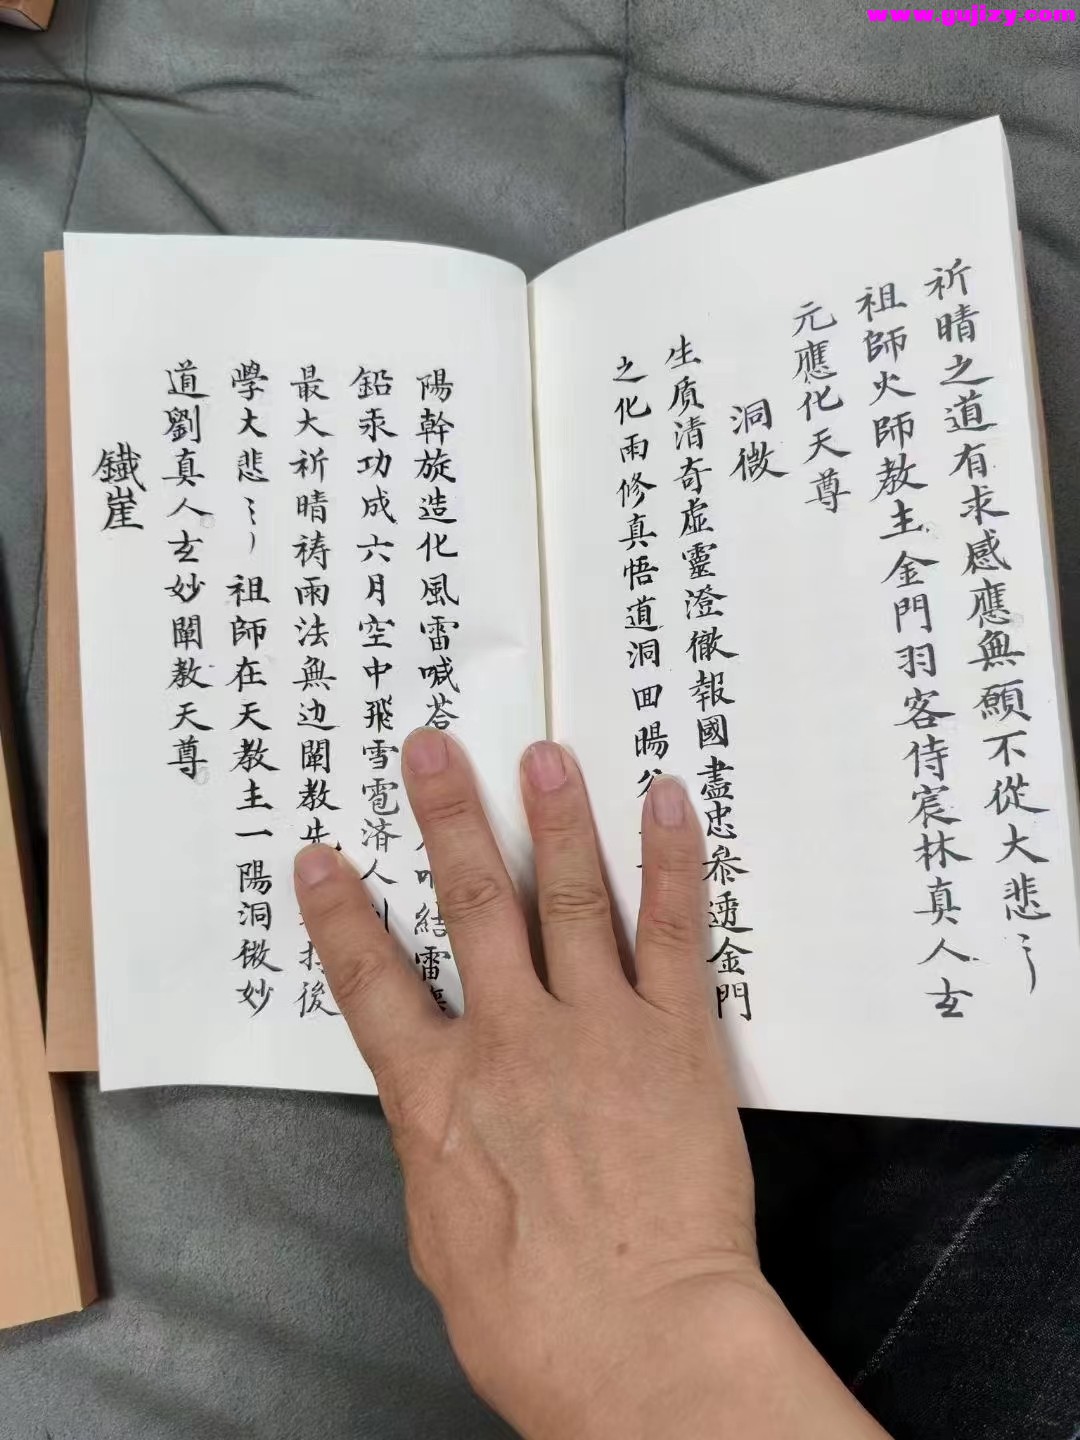 www.gujizy.com
祈晴之道有求感應無願不從大悲〻
祖師火師教主金門羽客侍宸林真人玄
元應化天尊
洞微
生质清奇虛靈澄徹報國盡忠叅透金門
之化雨修真悟道洞回暘
陽幹旋造化風雷喊荅結雷
鉛汞功成六月空中飛雪雹済人
最大祈晴祷雨法無边闡教後
學大悲〻〻祖師在天教主一陽洞微妙
道劉真人玄妙闡教天尊
鐵崖